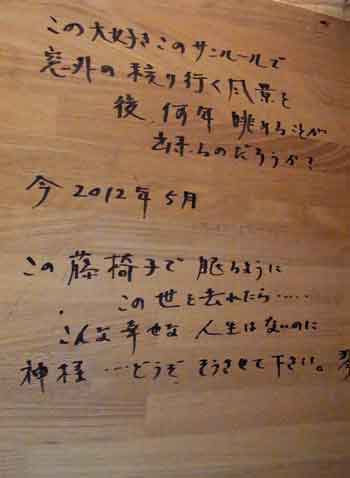 この大好きこのサンルールで
窓外の移り行く風景を
後、何年 眺めることが
出来るのだろうか?
今 2012年5月
この藤椅子で 眠るように
この世を去れたら‥‥‥
こんな幸せな 人生はないのに
神様 …どうぞ そうさせて下さい。